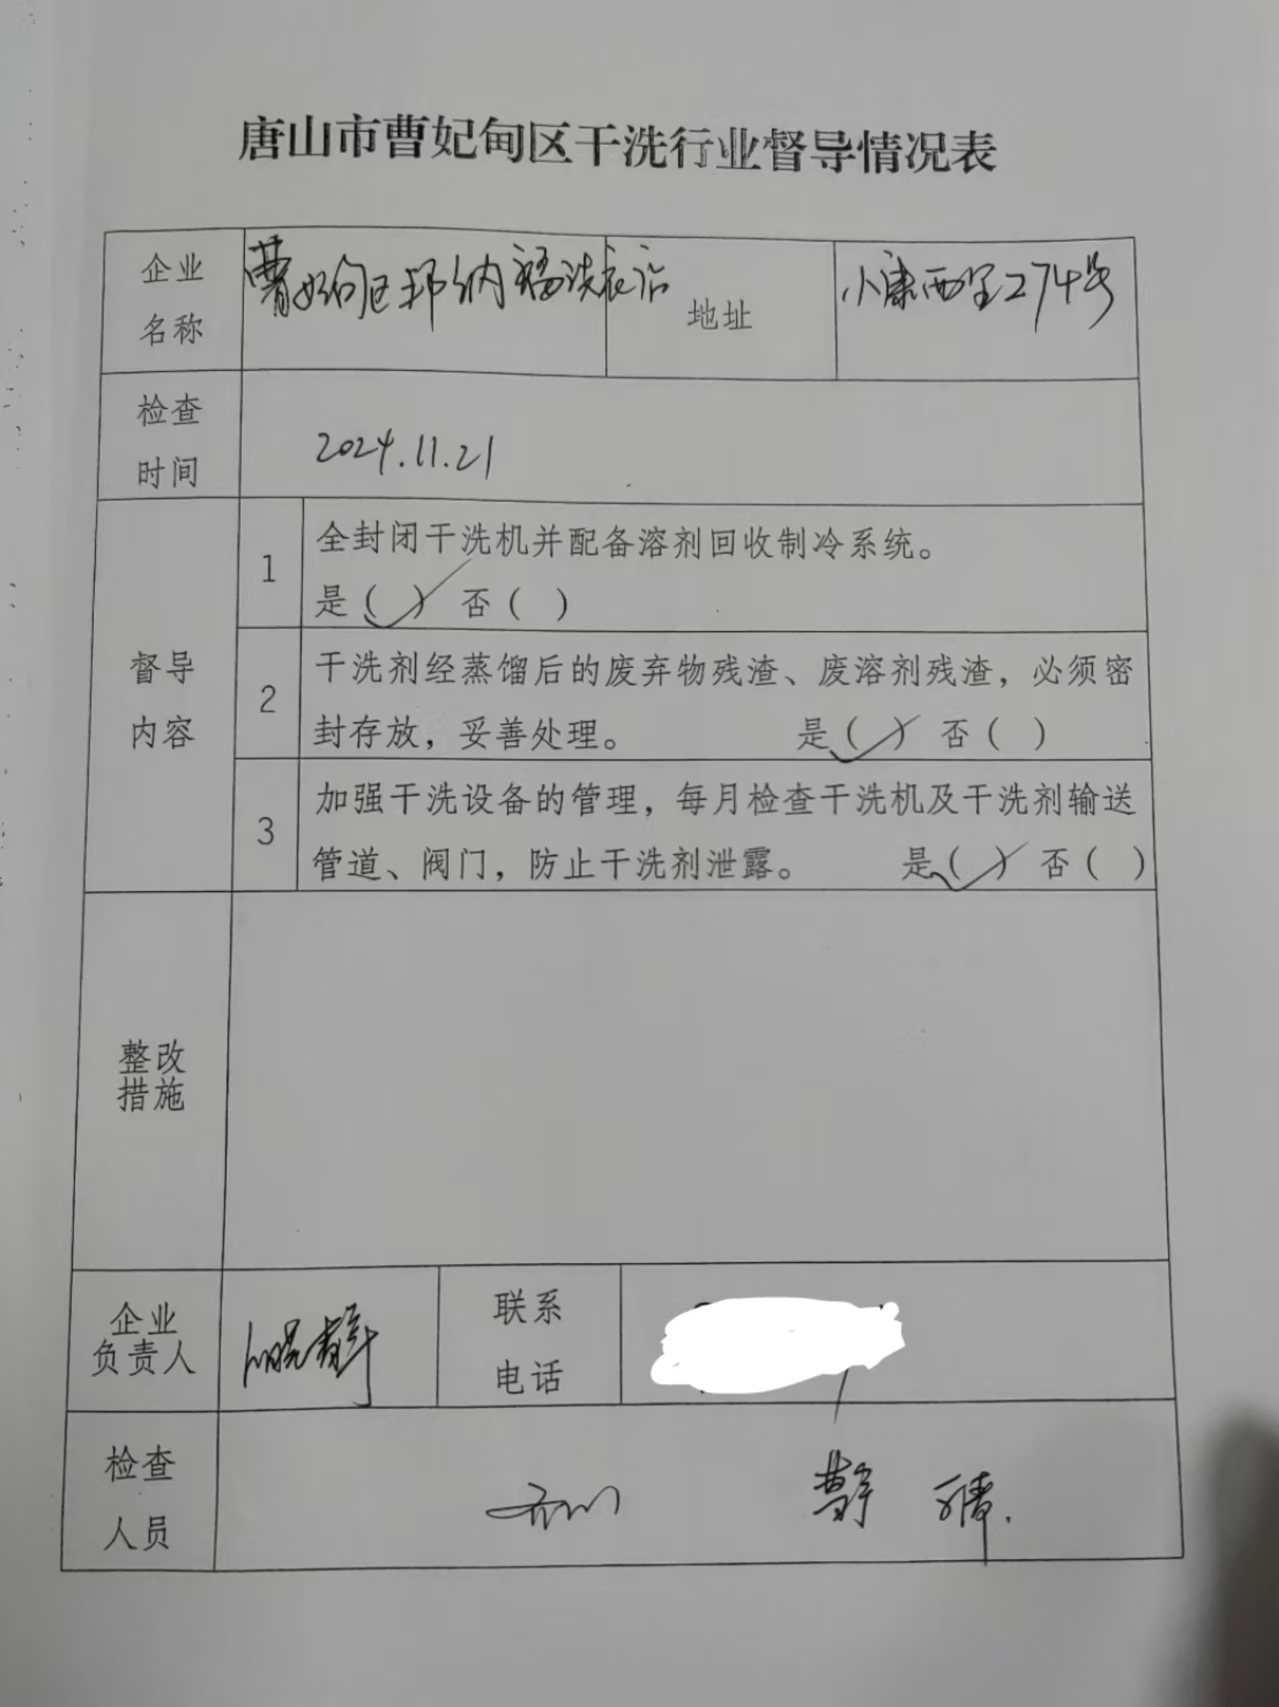 唐山市曹妃甸区干洗行业督导情况表
企业
名称
曹妃甸区邦纳福洗衣店
地址
小康西里274号
检查
时间
2024.11.21
督导
内容
1
全封闭干洗机并配备溶剂回收制冷系统。
是(✓) 否( )
2
干洗剂经蒸馏后的废弃物残渣、废溶剂残渣，必须密
封存放，妥善处理。 是(✓) 否( )
3
加强干洗设备的管理，每月检查干洗机及干洗剂输送
管道、阀门，防止干洗剂泄露。 是(✓) 否( )
整改
措施
企业
负责人
联系
电话
检查
人员